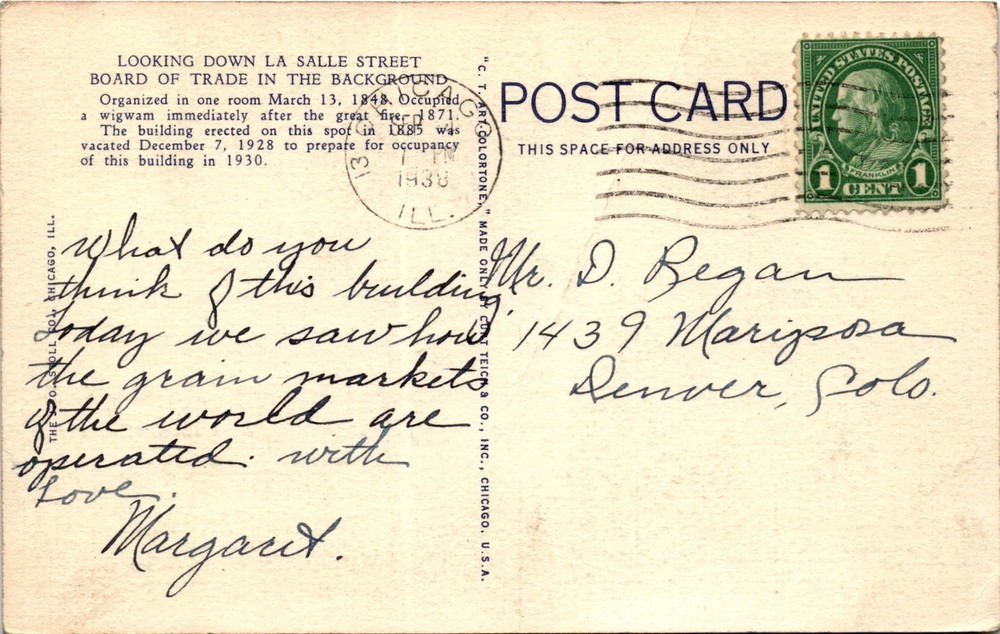 LOOKING DOWN LA SALLE STREET
BOARD OF TRADE IN THE BACKGROUND
Organized in one room March 13, 1848. Occupied
a wigwam immediately after the great fire, 1871.
The building erected on this spot in 1885 was
vacated December 7, 1928 to prepare for occupancy
of this building in 1930.
What do you
think of this building
today we saw how
the grain markets
of the world are
operated. with
Love.
Margaret.
CHICAGO, ILL.
"C. T. ART-COLORTONE," MADE ONLY BY CURT TEICH & CO., INC., CHICAGO, U.S.A.
CHICAGO
13
PM
ILL.
POST CARD
THIS SPACE FOR ADDRESS ONLY
UNITED STATES POSTAGE
FRANKLIN
1 CENT 1
Mr. D. Regan
1439 Mariposa
Denver, Colo.